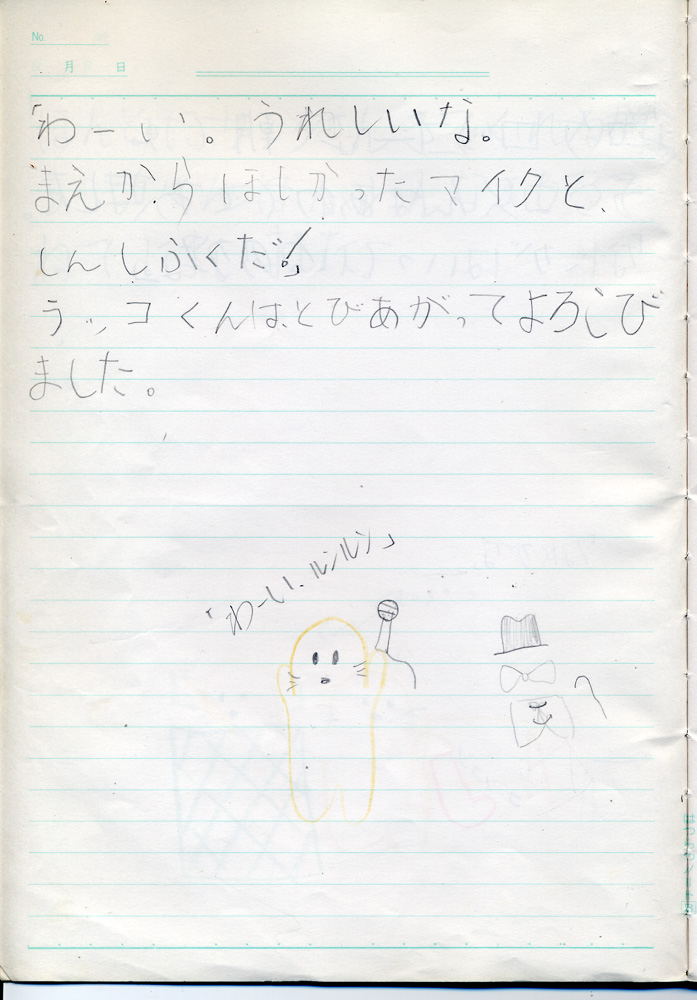 No.
月 日
「わーい。うれしいな。
まえからほしかったマイクと、
しんしふくだ!」
ラッコくんは、とびあがってよろこび
ました。
「わーい、ルンルン」